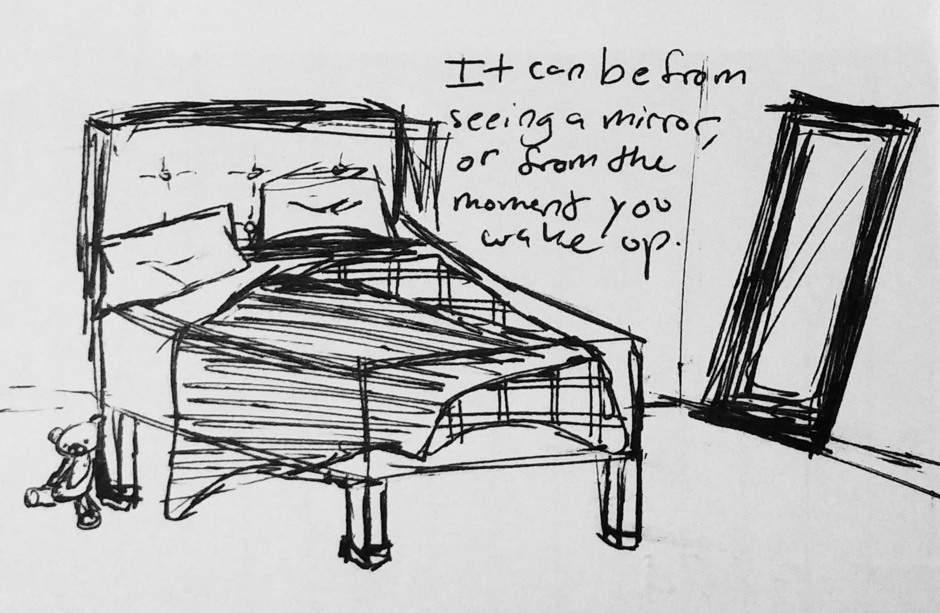 It can be from
seeing a mirror,
or from the
moment you
wake up.